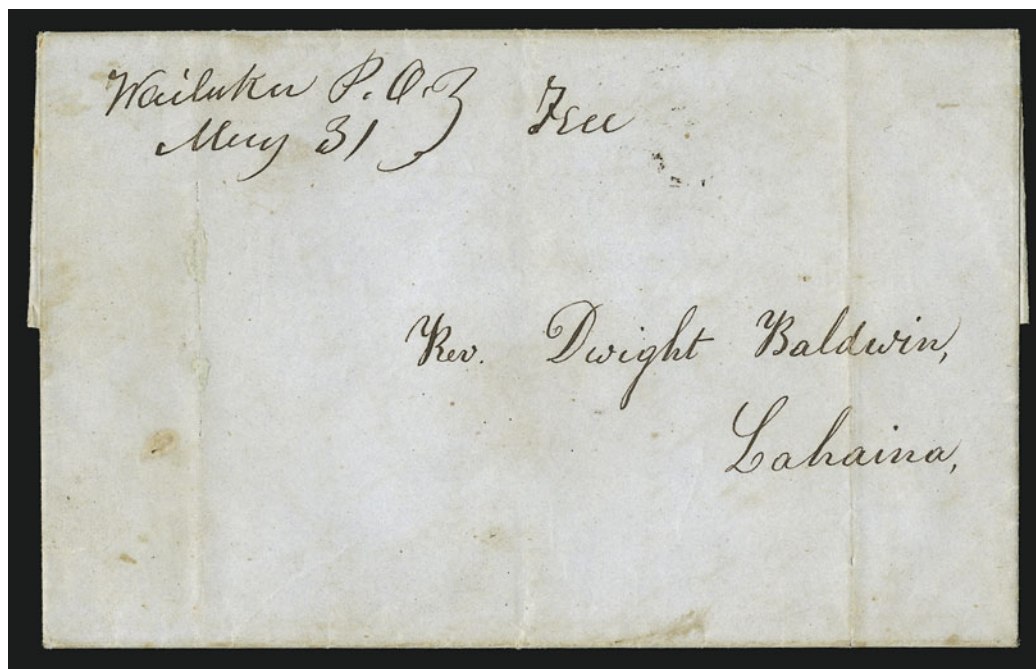 Wailuku P.O. Free
May 31
Rev. Dwight Baldwin,
Lahaina,